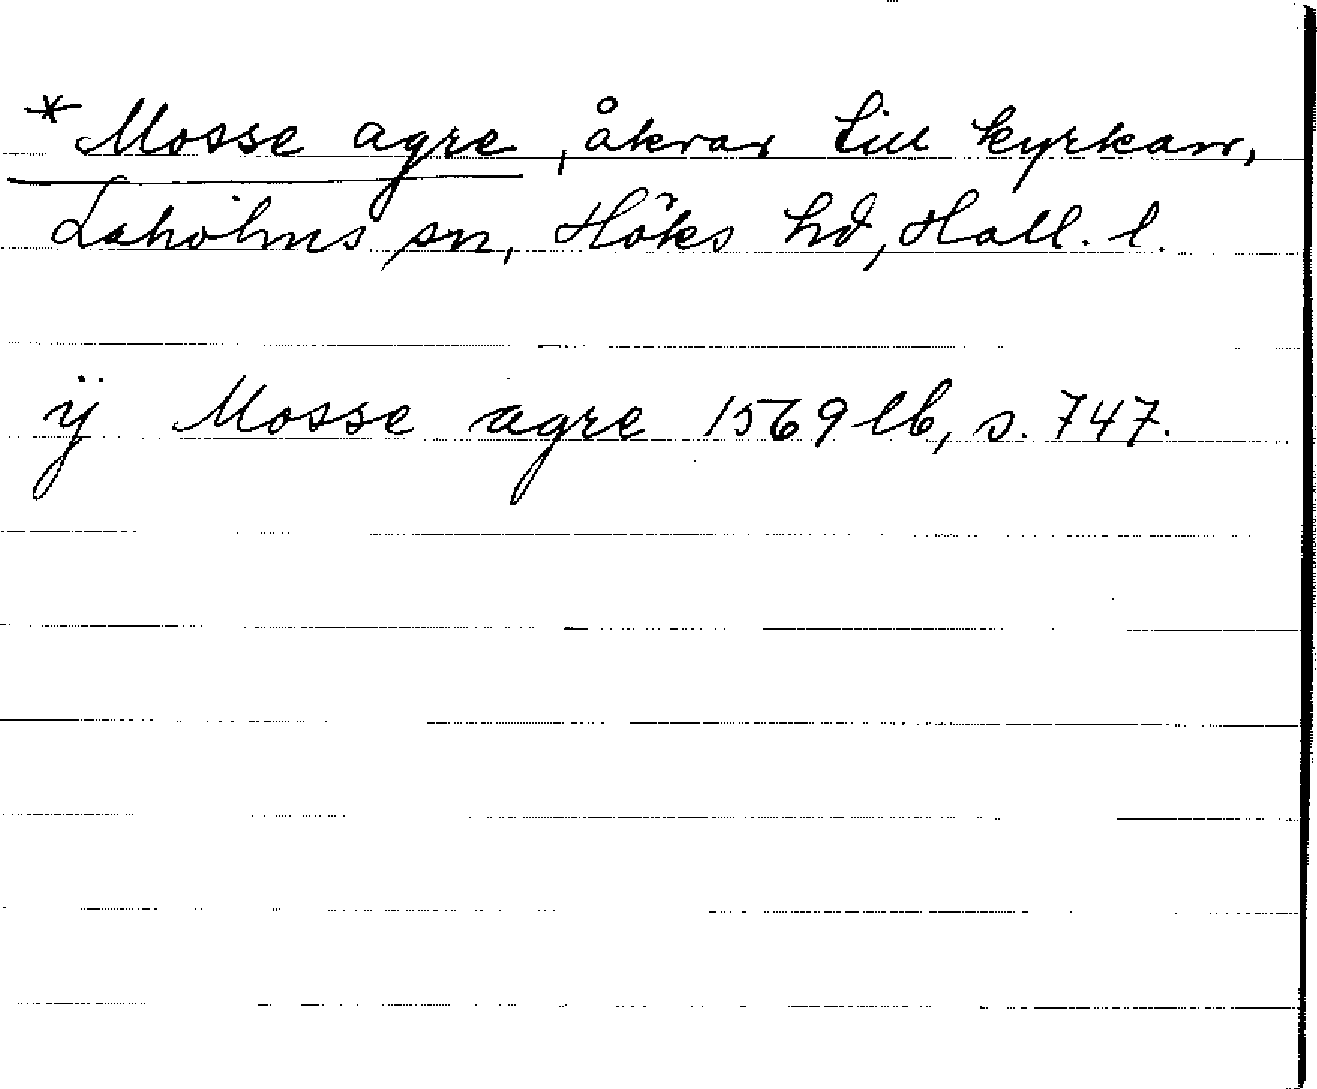 * Mosse agre, åkrar till kyrkan,
Laholms sn, Höks hd, Hall. l.
ÿ Mosse agre 1569 lb, s. 747.